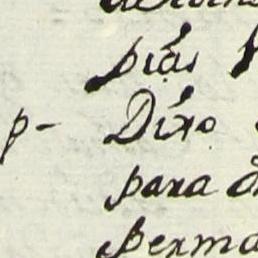 piás
p- Dixo
para
perma